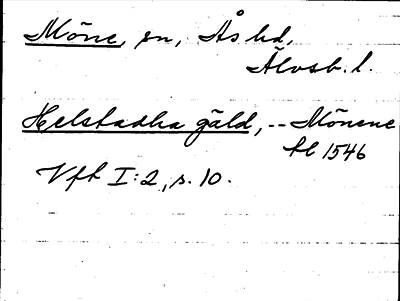 Möne, sn, Ås hd,
Älvsb. l.
Helstadha gäld, -- Mönene
hl 1546
Vfh I:2, s. 10.